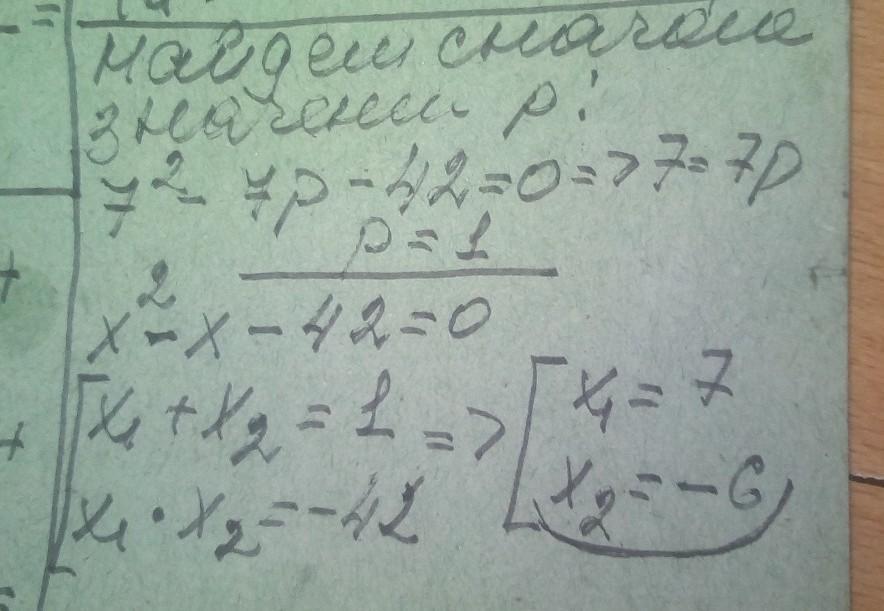 Найдем сначала
значени p:
7² - 7p - 42 = 0 => 7 = 7p
p = 1
x² - x - 42 = 0
[x₁ + x₂ = 1 => [x₁ = 7
x₁ · x₂ = -42 x₂ = -6